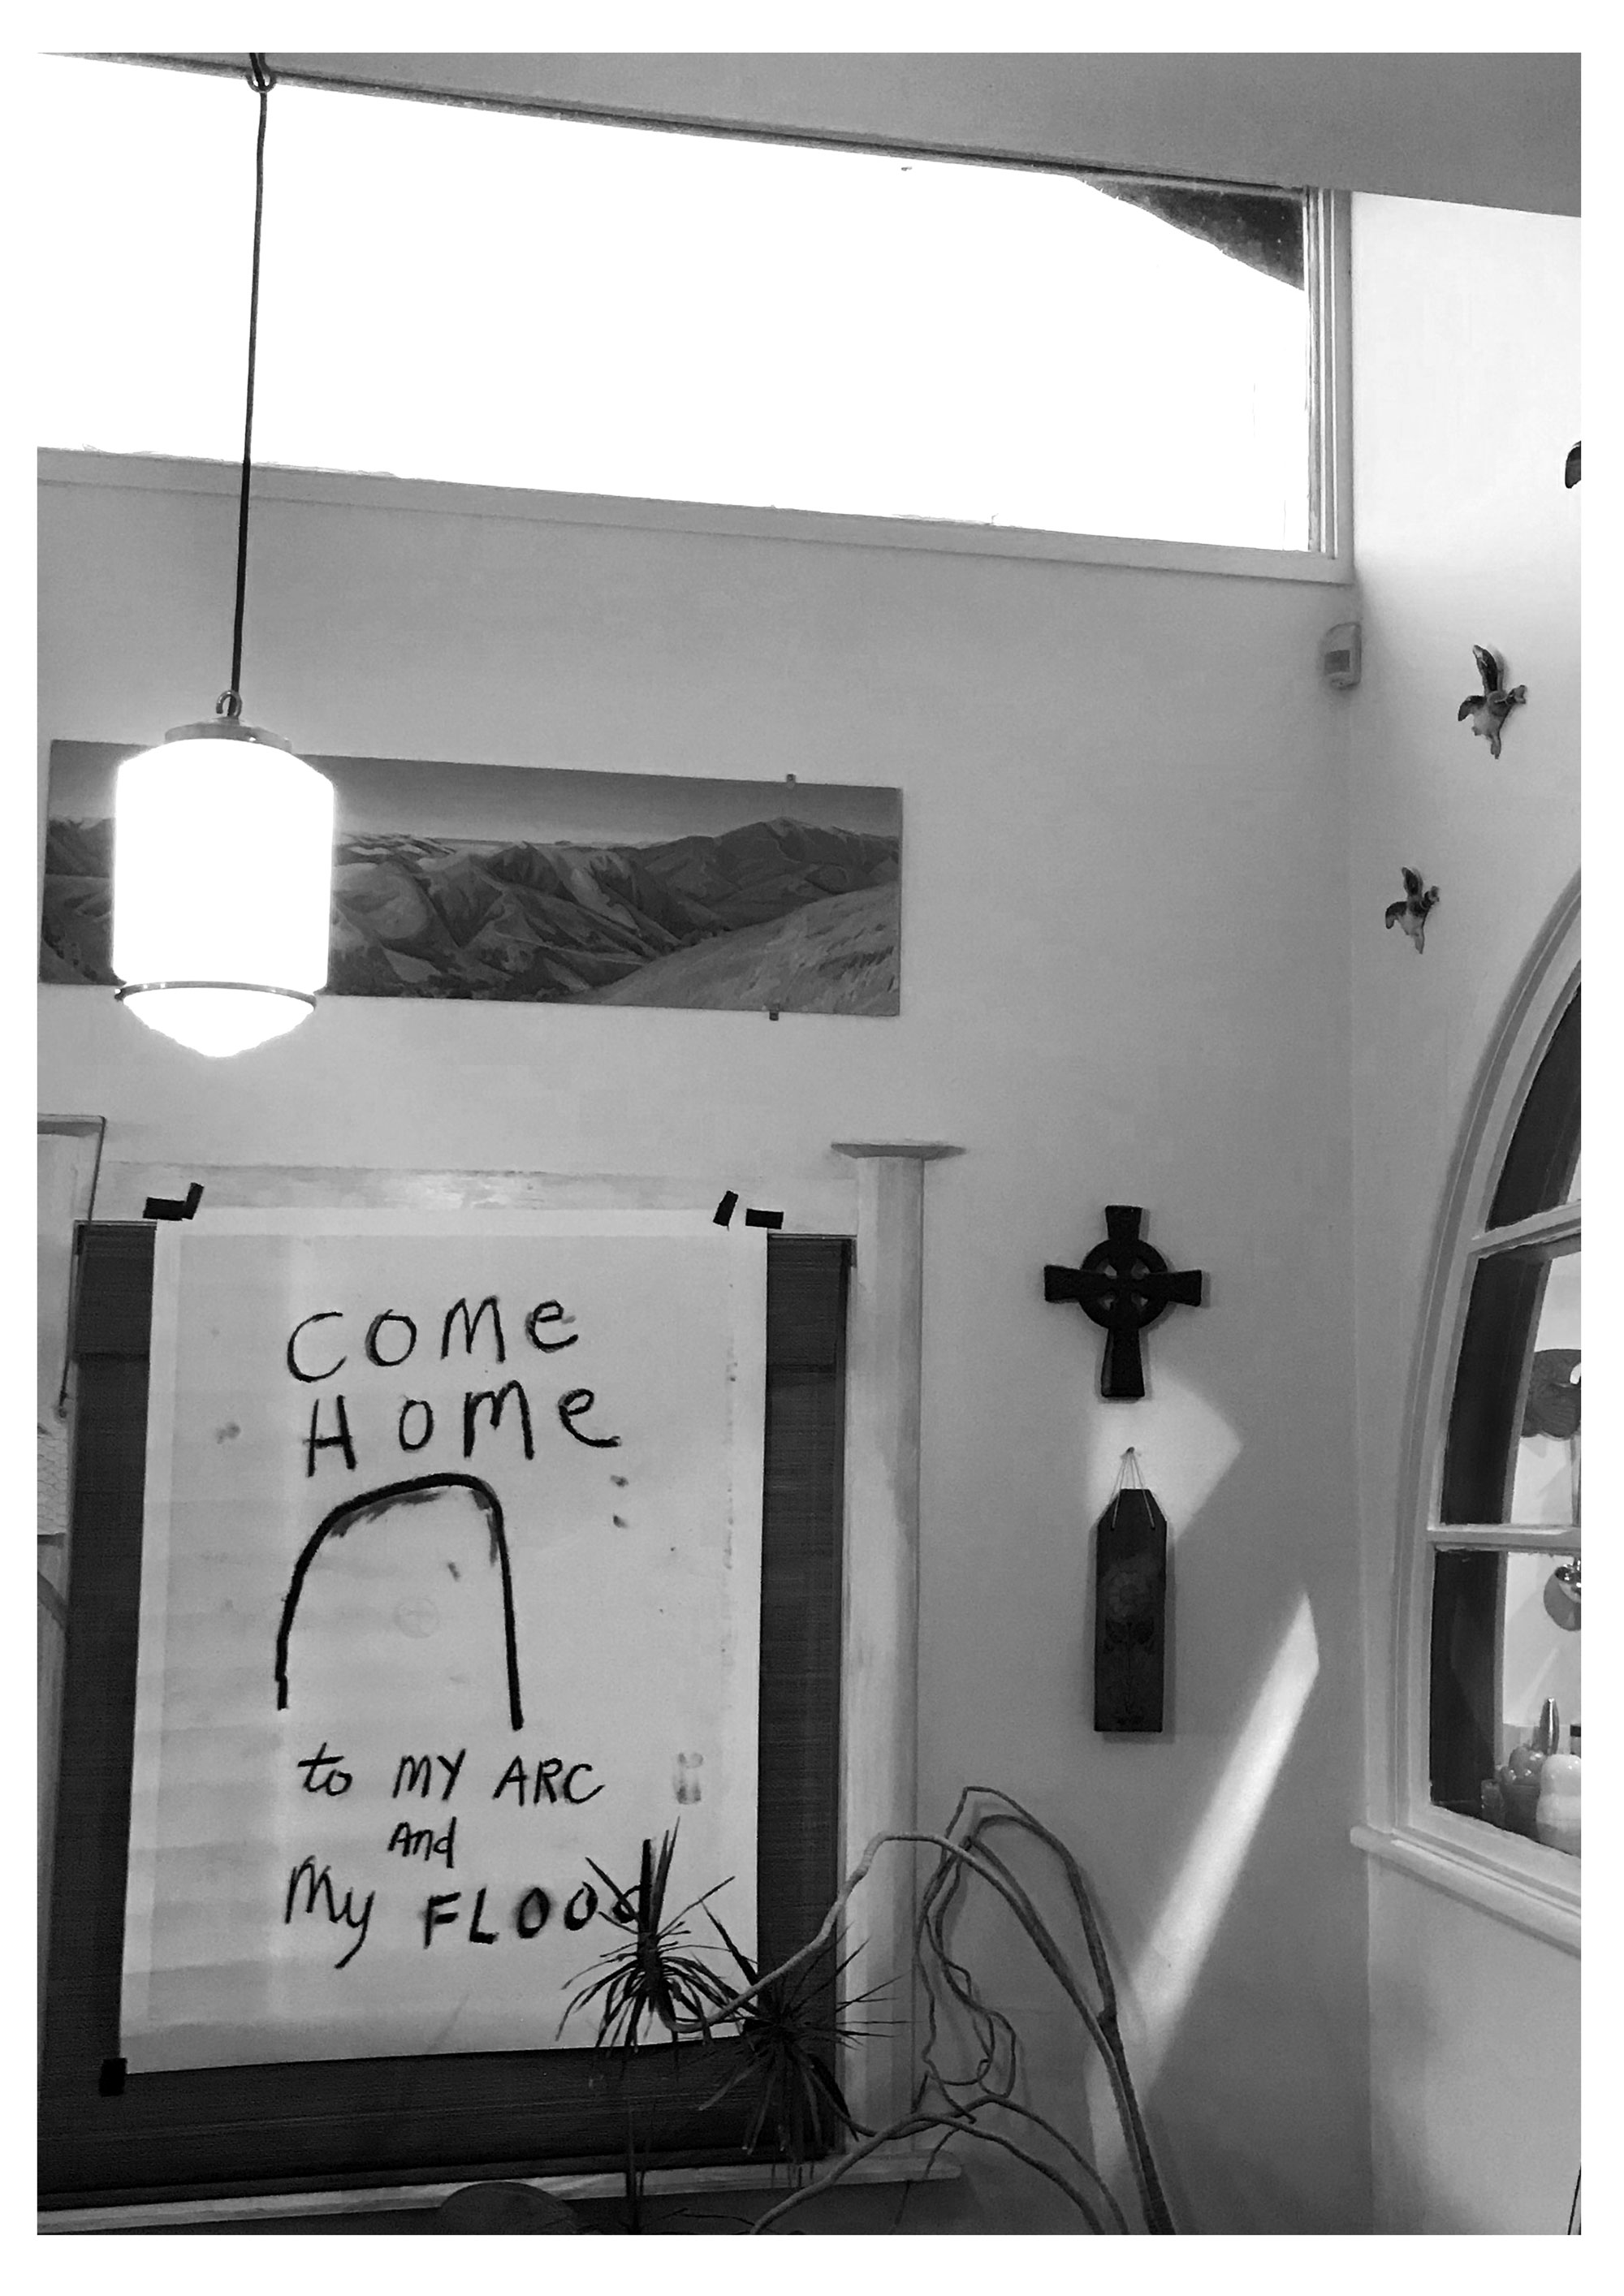 COMe
HOMe
to MY ARC
And
My FLOOd